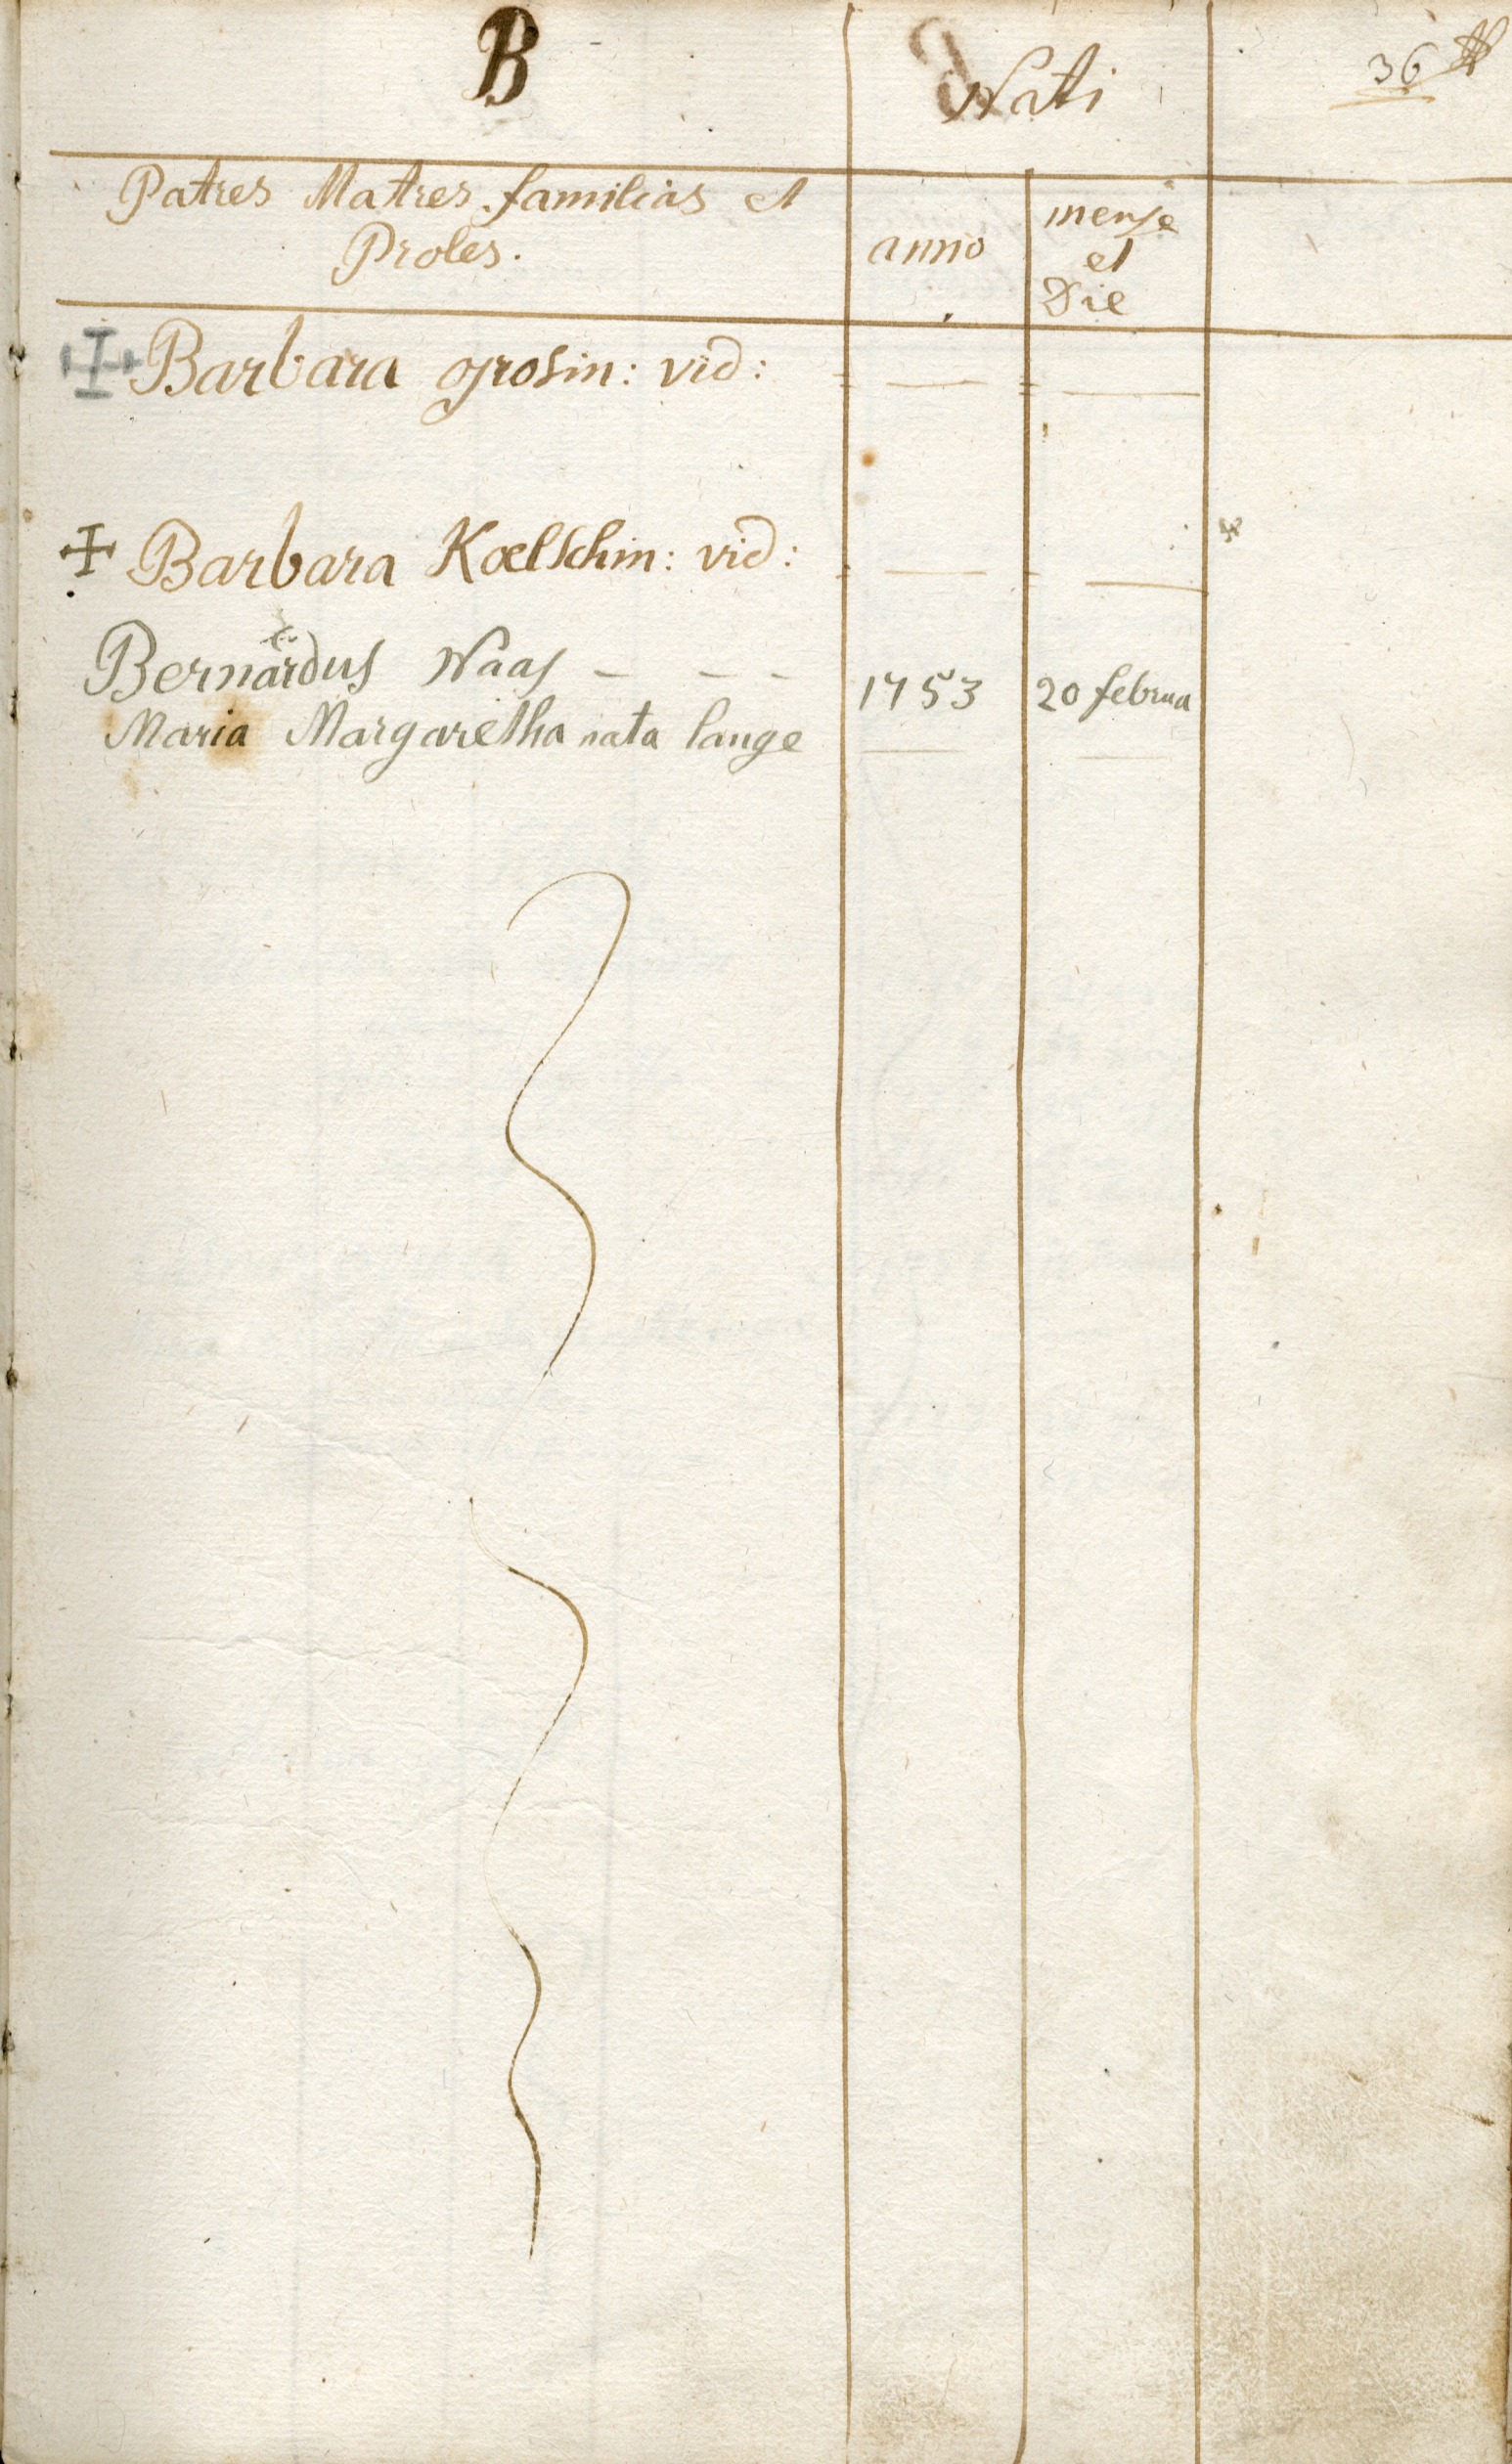 B
Nati
36
Patres Matres familias et
Proles.
anno
mense
et
Die
Barbara grosin: vid:
Barbara Koelschin: vid:
Bernardus Naas - - - 1753 20 februa
Maria Margaretha nata lange